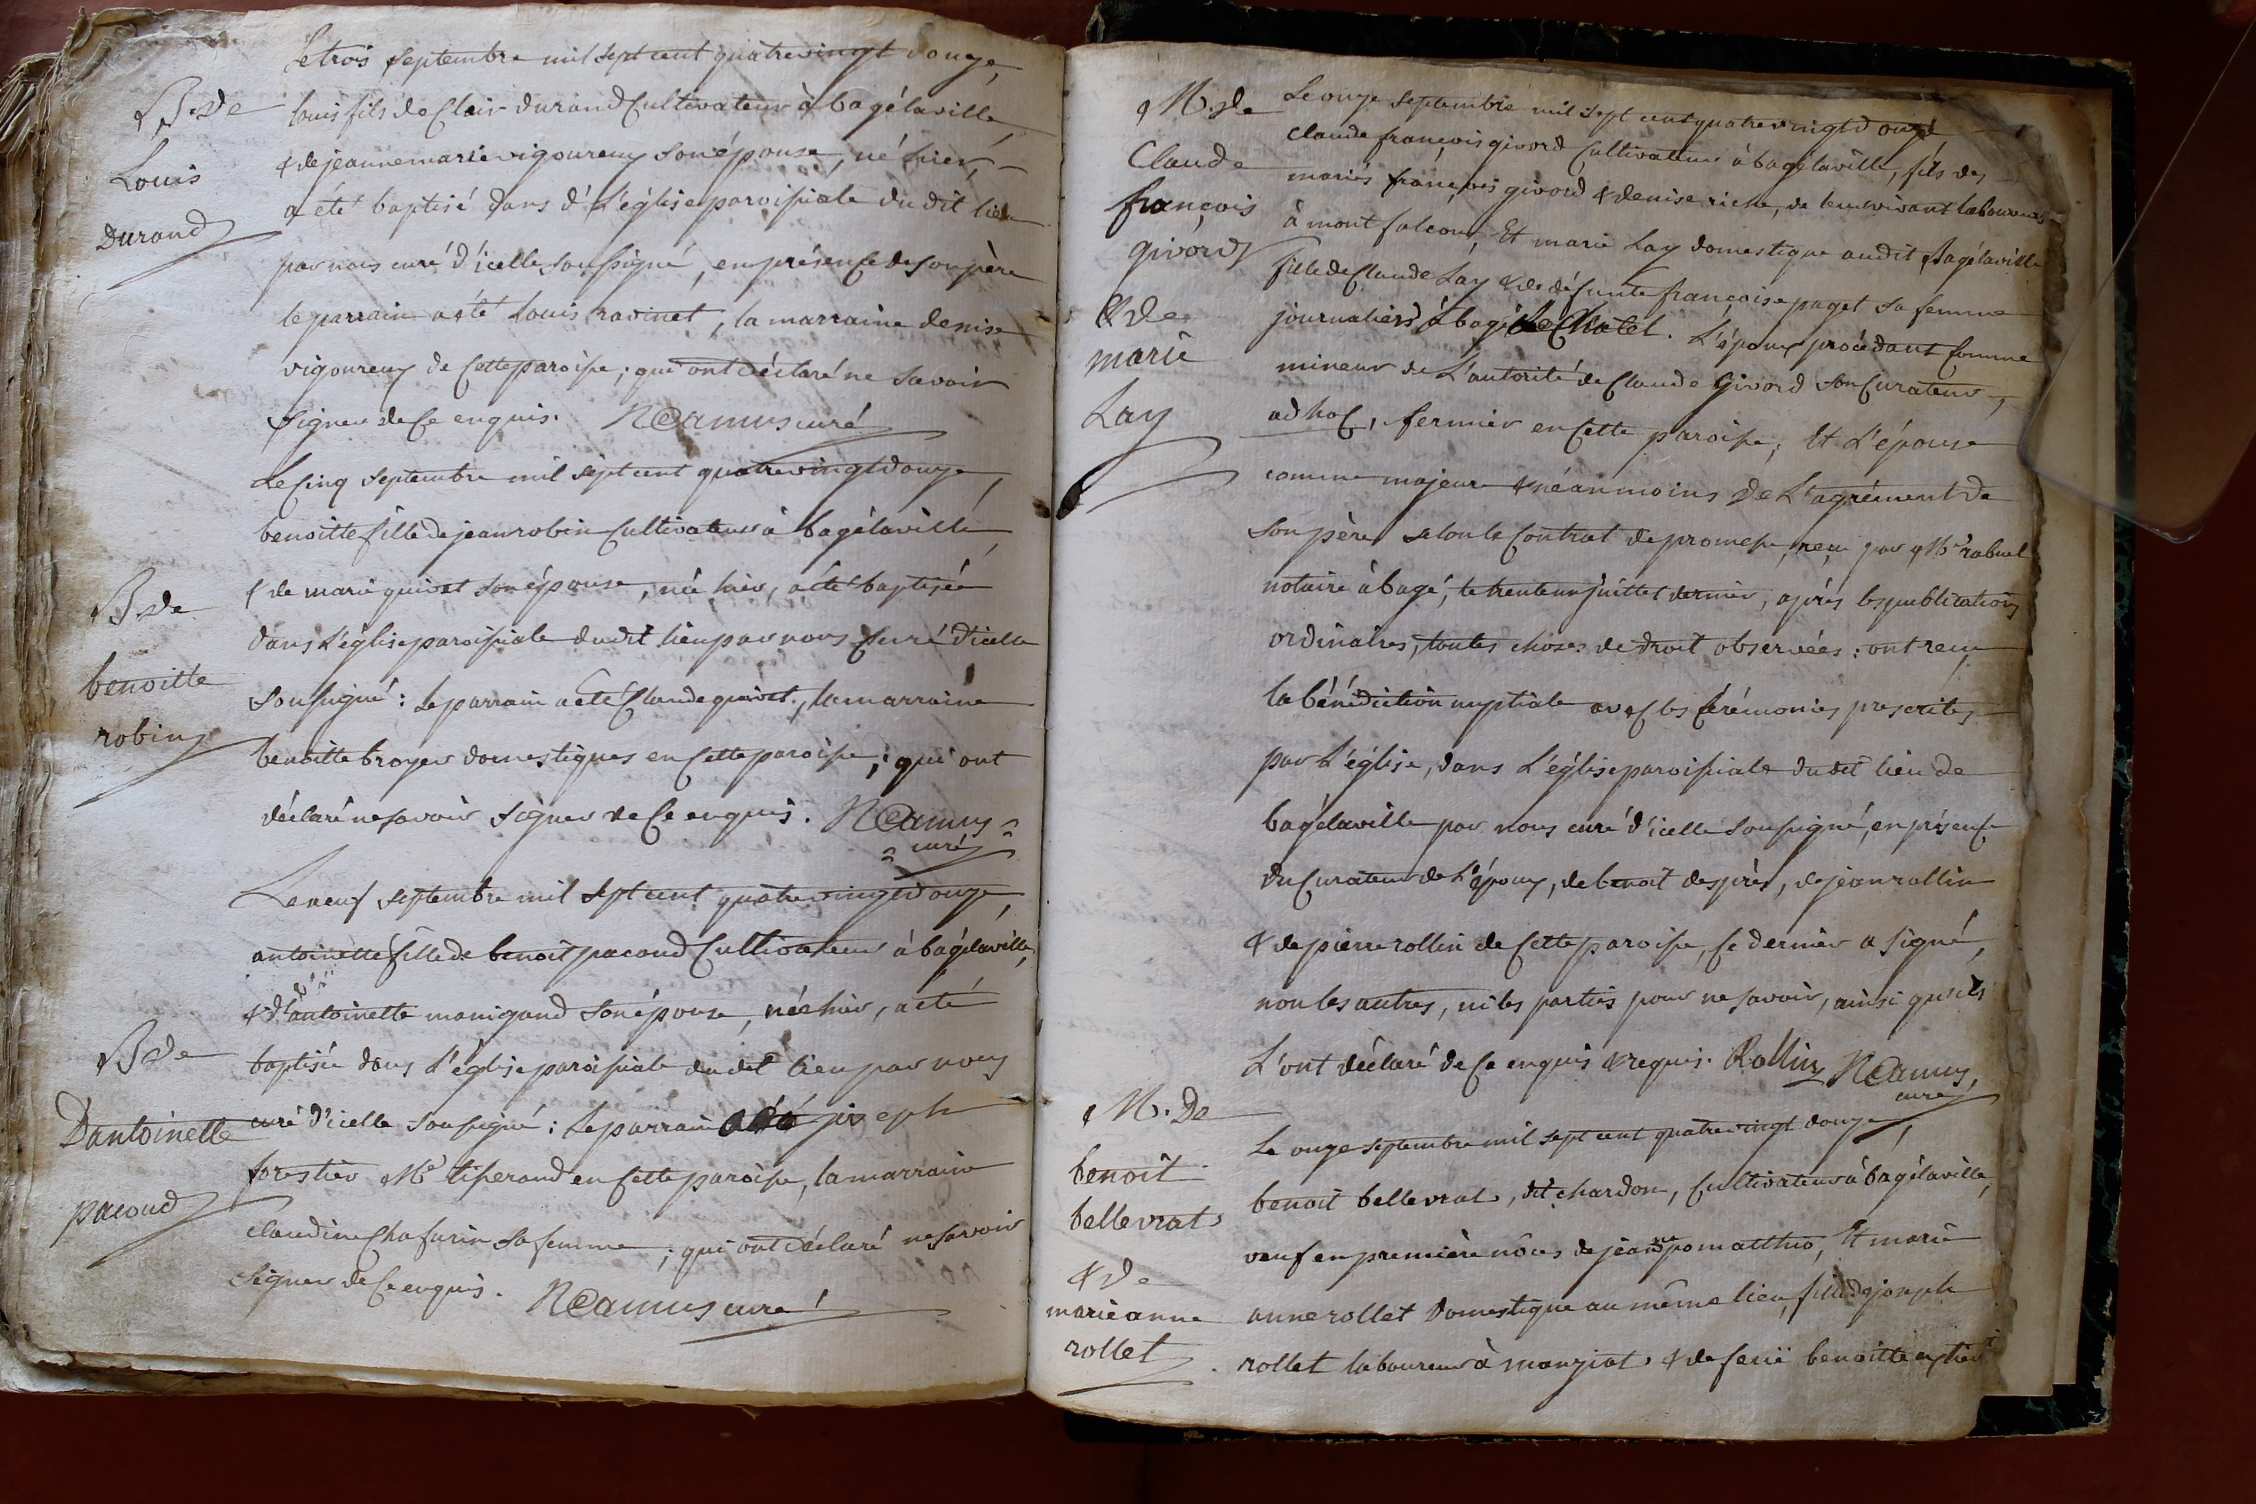 Le trois septembre mil sept cent quatrevingt douze,
B. de
Louis
Durand
louis fils de Clair durand Cultivateur à bagélaville
& de jeanne marie vigoureux son épouse, né hier,
a été baptisé dans d L'église paroissiale du dit lieu
par nous curé d'icelle soussigné, en présence de son père
le parrain a été Louis ravinet, la marraine denise
vigoureux de Cette paroisse; qui ont déclaré ne savoir
signer de Ce enquis. NCamus curé
B. de
benoitte
robin
Le Cinq septembre mil sept cent quatrevingt douze,
benoitte fille de jean robin Cultivateur à bagélaville,
& de marie guivet son épouse, née hier, a été baptisée
dans L'église paroissiale dudit lieu par nous Curé d'icelle
soussigné: le parrain a été Claude guivet, la marraine
benoitte broyer domestiques en Cette paroisse; qui ont
déclaré ne savoir signer de Ce enquis. NCamus
curé
B de
D'antoinette
pacoud
Le neuf septembre mil sept cent quatrevingt douze,
antoinette fille de benoit pacoud Cultivateur à bagélaville,
& d'antoinette manigand son épouse, née hier, a été
baptisée dans L'église paroissiale du dit lieu par nous
curé d'icelle soussigné: le parrain a été joseph
forestier Me tisserand en Cette paroisse, la marraine
Claudine Chafurin sa femme; qui ont déclaré ne savoir
signer de Ce enquis. NCamus curé
M. de
Claude
françois
givord
& de
marie
Lay
Le onze septembre mil sept cent quatrevingt douze
Claude françois givord Cultivateur à bagélaville, fils des
mariés françois givord & denise riche, de leur vivant laboureurs
à montfalcon, Et marie Lay domestique audit Bagélaville
fille de Claude Lay & de défunte françoise paget sa femme
journaliers à bagé Le Chatel. L'époux procédant Comme
mineur de L'autorité de Claude Givord son Curateur,
ad hoc, fermier en Cette paroisse; Et L'épouse
comme majeure & néanmoins de L'agrément de
son père selon le Contrat de promesse, reçu par Me rabuel
notaire à bagé, le trente un juillet dernier, après les publications
ordinaires, toutes choses de droit observées: ont reçu
la bénédiction nuptiale avec les Cérémonies prescrites
par L'église, dans L'église paroissiale du dit lieu de
bagélaville par nous curé d'icelle soussigné, en présence
du Curateur de L'époux, de benoit desprès, de jean rollin
& de pierre rollin de Cette paroisse, Ce dernier a signé,
non les autres, ni les parties pour ne savoir, ainsi qu'ils
L'ont déclaré de Ce enquis & requis. Rollin NCamus,
curé
M. De
benoit
bellevrat
& de
marie anne
rollet
Le onze septembre mil sept cent quatrevingt douze,
benoit bellevrat, dit chardon, Cultivateur à bagélaville,
veuf en première nôces de jeanne pomatthio, Et marie
anne rollet domestique au même lieu, fille de joseph
rollet laboureur à manziat, & de feüe benoitte